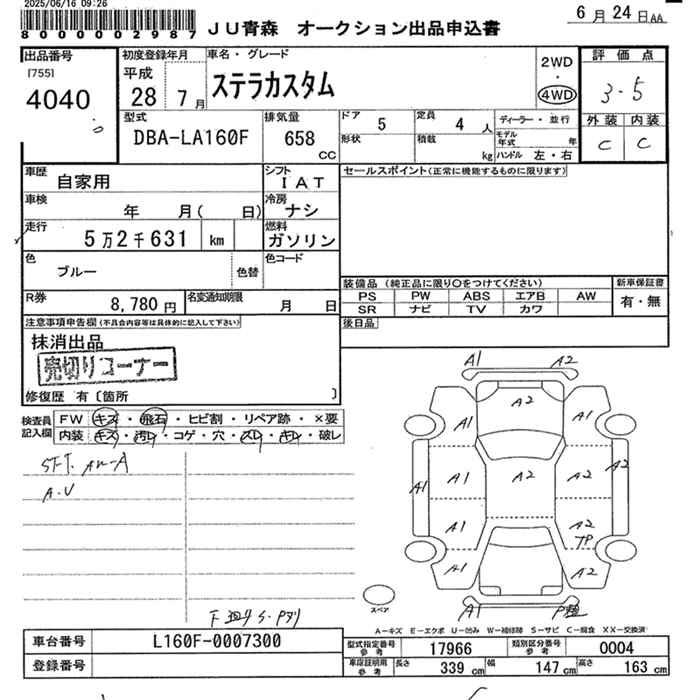 2025/06/16 09:26
8 0 0 0 0 0 2 9 8 7
JU青森 オークション出品申込書
6 月 24 日 AA
出品番号
[755]
4040
初度登録年月
平成
28 年 7 月
車名・グレード
ステラカスタム
2WD
・
4WD
評価点
3.5
外装 内装
C C
型式
DBA-LA160F
排気量
658
CC
ドア 5
形状
定員 4 人
積載 kg
ディーラー・並行
モデル年式 年
ハンドル 左・右
車歴
自家用
シフト
I A T
車検
年 月( 日)
冷房
ナシ
走行
5万2千631 km
燃料
ガソリン
色
ブルー
色替
色コード
R券
8,780 円
名変通知期限
月 日
セールスポイント(正常に機能するものに限ります)
装備品 (純正品に限り○をつけてください)
PS PW ABS エアB AW
SR ナビ TV カワ
新車保証書
有・無
後日品
注意事項申告欄(不具合内容等は具体的に記入して下さい)
抹消出品
売切りコーナー
修復歴 有〔箇所 〕
検査員記入欄
FW キズ・飛石・ヒビ割・リペア跡・×要
内装 キズ・汚レ・コゲ・穴・スレ・キレ・破レ
A.V
A1 A2
A2
A1 A1
A1 A1 A2 A2 A2
A1 A2
TP
A1 A2
A1
スペア
A−キズ E−エクボ U−凹み W−補修跡 S−サビ C−腐食 XX−交換済
車台番号
L160F-0007300
登録番号
型式指定番号参考
17966
類別区分番号参考
0004
車庫証明用参考
長さ 339 cm
幅 147 cm
高さ 163 cm